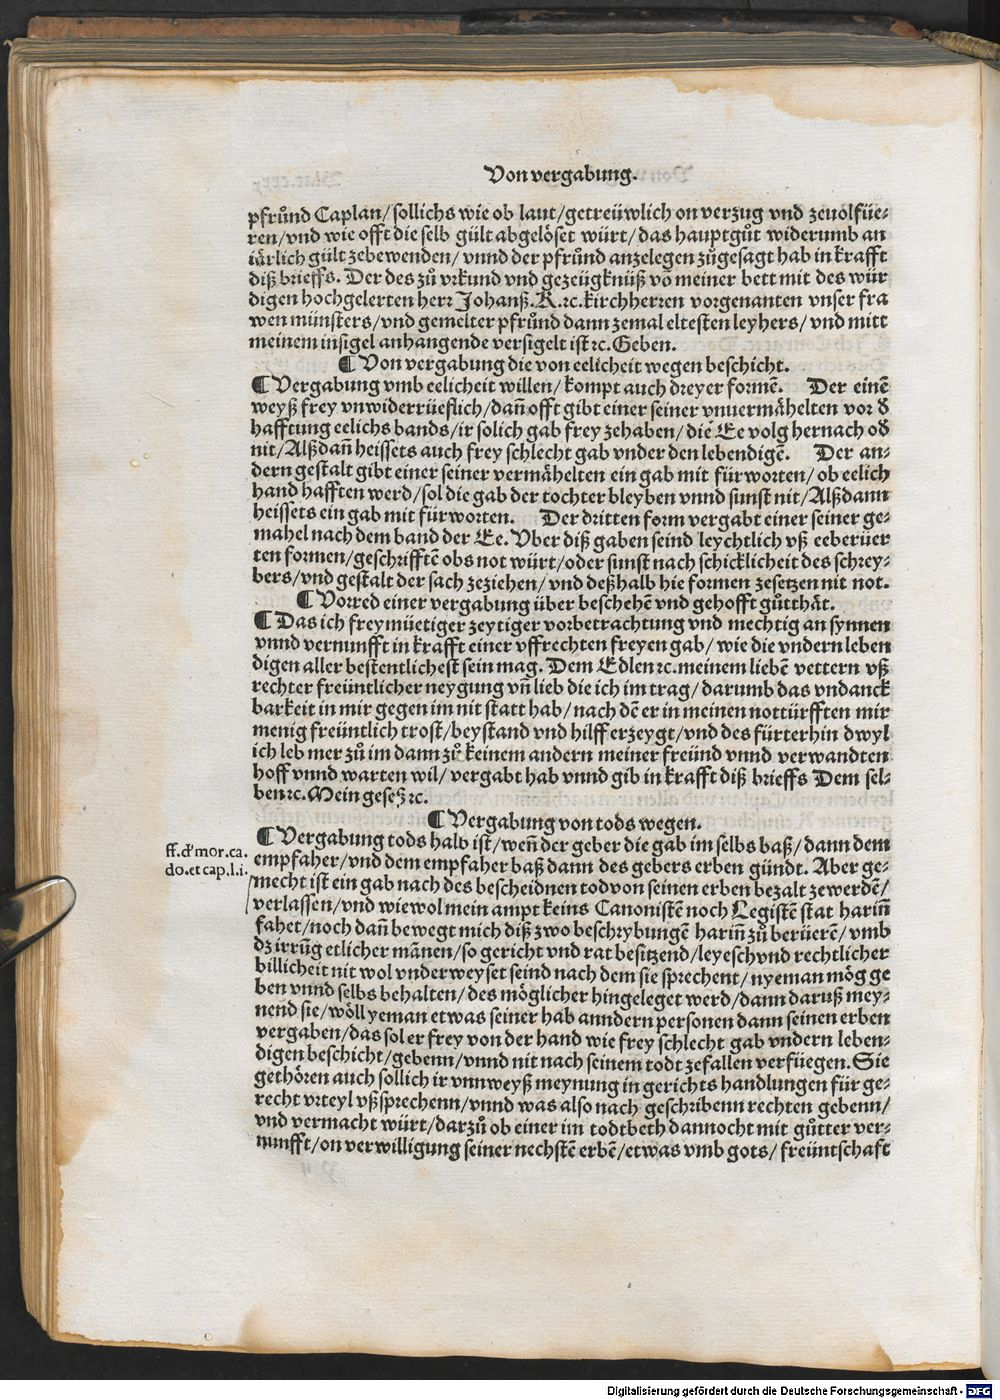 Von vergabung.
pfrůnd Caplan/sollichs wie ob laut/getreüwlich on verzug vnd zeuolfüe⸗
ren/vnd wie offt die selb gült abgelöset würt/das hauptgůt widerumb an
iärlich gült zebewenden/vnnd der pfrůnd anzelegen zůgesagt hab in krafft
diß brieffs. Der des zů vrkund vnd gezeügknüß vō meiner bett mit des wür
digen hochgelerten herr Johanß.K.ꝛc.kirchherren vorgenanten vnser fra
wen münsters/vnd gemelter pfrůnd dann zemal eltesten leyhers/vnd mitt
meinem insigel anhangende versigelt ist ꝛc.Geben.
¶ Von vergabung die von eelicheit wegen beschicht.
¶ Vergabung vmb eelicheit willen/kompt auch dreyer formē. Der einē
weyß frey vnwiderrüeflich/dañ offt gibt einer seiner vnuermähelten vor đ
hafftung eelichs bands/ir solich gab frey zehaben/die Ee volg hernach ođ
nit/Alßdañ heissets auch frey schlecht gab vnder den lebendigē. Der an⸗
dern gestalt gibt einer seiner vermähelten ein gab mit fürworten/ob eelich
hand hafften werd/sol die gab der tochter bleyben vnnd sunst nit/Alßdann
heissets ein gab mit fürworten. Der dritten form vergabt einer seiner ge⸗
mahel nach dem band der Ee. Vber diß gaben seind leychtlich vß eeberüer
ten formen/geschrifftē obs not würt/oder sunst nach schicklicheit des schrey⸗
bers/vnd gestalt der sach zeziehen/vnd deßhalb hie formen zesetzen nit not.
¶ Vorred einer vergabung über beschehē vnd gehofft gůtthät.
¶ Das ich freymüetiger zeytiger vorbetrachtung vnd mechtig an synnen
vnnd vernunfft in krafft einer vffrechten freyen gab/wie die vndern leben
digen aller bestentlichest sein mag. Dem Edlen ꝛc.meinem liebē vettern vß
rechter freüntlicher neygung vñ lieb die ich im trag/darumb das vndanck
barkeit in mir gegen im nit statt hab/nach dē er in meinen nottürfften mir
menig freüntlich trost/beystand vnd hilff erzeygt/vnd des fürterhin dwyl
ich leb mer zů im dann zů keinem andern meiner freünd vnnd verwandten
hoff vnnd warten wil/vergabt hab vnnd gib in krafft diß brieffs Dem sel⸗
ben ꝛc.Mein geseß ꝛc.
¶ Vergabung von tods wegen.
¶ Vergabung tods halb ist/weñ der geber die gab im selbs baß/dann dem
ff.đ mor.ca.
do.et cap.l.i.
empfaher/vnd dem empfaher baß dann des gebers erben gündt. Aber ge⸗
mecht ist ein gab nach des bescheidnen tod von seinen erben bezalt zewerdē/
verlassen/vnd wiewol mein ampt keins Canonistē noch Legistē stat hariñ
fahet/noch dañ bewegt mich diß zwo beschrybungē hariñ zů berüerē/vmb
dz irrũg etlicher mānen/so gericht vnd rat besitzend/leyesch vnd rechtlicher
billicheit nit wol vnderweyset seind nach dem sie sprechent/nyeman mög ge
ben vnnd selbs behalten/des möglicher hingeleget werd/dann daruß mey⸗
nend sie/wöll yeman etwas seiner hab anndern personen dann seinen erben
vergaben/das sol er frey von der hand wie frey schlecht gab vndern leben⸗
digen beschicht/gebenn/vnnd nit nach seinem todt zefallen verfüegen. Sie
gethören auch sollich ir vnnweyß meynung in gerichts handlungen für ge⸗
recht vrteyl vßsprechenn/vnnd was also nach geschribenn rechten gebenn/
vnd vermacht würt/darzů ob einer im todtbeth dannocht mit gůtter ver⸗
nunfft/on verwilligung seiner nechstē erbē/etwas vmb gots/freüntschaft
Digitalisierung gefördert durch die Deutsche Forschungsgemeinschaft - DFG